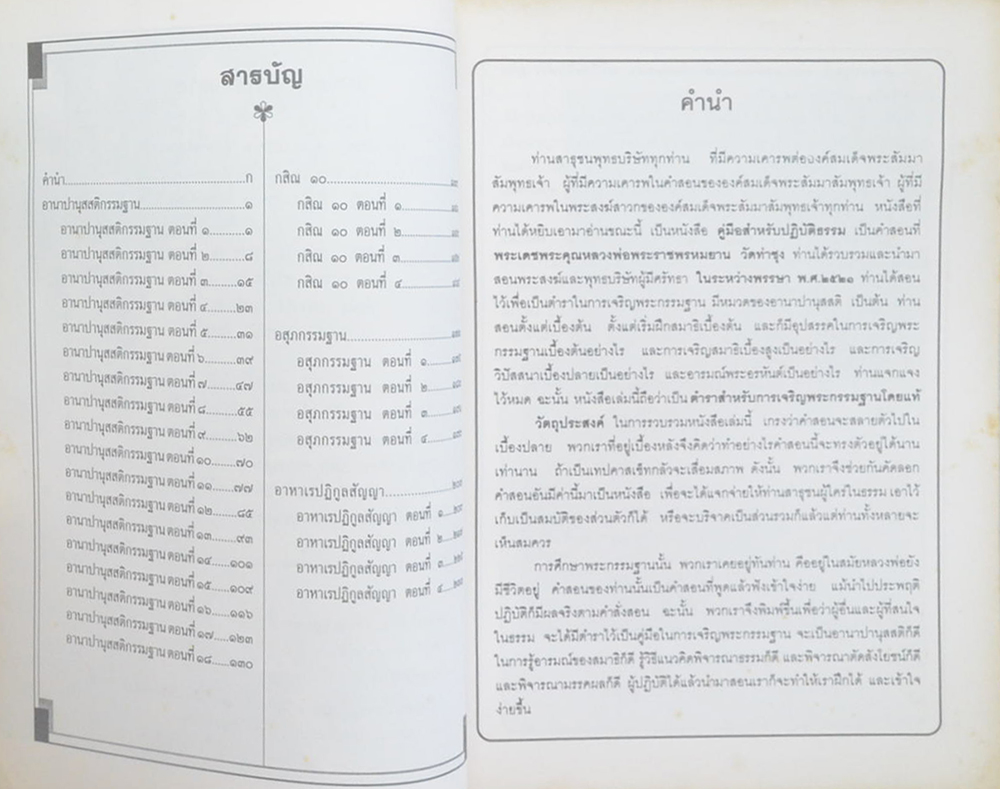 สารบัญ
คำนำ.......................................................ก
อานาปานุสสติกรรมฐาน.............................๑
อานาปานุสสติกรรมฐาน ตอนที่ ๑.........๑
อานาปานุสสติกรรมฐาน ตอนที่ ๒.........๘
อานาปานุสสติกรรมฐาน ตอนที่ ๓.......๑๕
อานาปานุสสติกรรมฐาน ตอนที่ ๔.......๒๓
อานาปานุสสติกรรมฐาน ตอนที่ ๕.......๓๑
อานาปานุสสติกรรมฐาน ตอนที่ ๖.......๓๙
อานาปานุสสติกรรมฐาน ตอนที่ ๗.......๔๗
อานาปานุสสติกรรมฐาน ตอนที่ ๘.......๕๕
อานาปานุสสติกรรมฐาน ตอนที่ ๙.......๖๒
อานาปานุสสติกรรมฐาน ตอนที่ ๑๐......๗๐
อานาปานุสสติกรรมฐาน ตอนที่ ๑๑......๗๗
อานาปานุสสติกรรมฐาน ตอนที่ ๑๒......๘๕
อานาปานุสสติกรรมฐาน ตอนที่ ๑๓......๙๓
อานาปานุสสติกรรมฐาน ตอนที่ ๑๔.....๑๐๑
อานาปานุสสติกรรมฐาน ตอนที่ ๑๕.....๑๐๙
อานาปานุสสติกรรมฐาน ตอนที่ ๑๖.....๑๑๖
อานาปานุสสติกรรมฐาน ตอนที่ ๑๗.....๑๒๓
อานาปานุสสติกรรมฐาน ตอนที่ ๑๘.....๑๓๐
กสิณ ๑๐
กสิณ ๑๐ ตอนที่ ๑
กสิณ ๑๐ ตอนที่ ๒
กสิณ ๑๐ ตอนที่ ๓
กสิณ ๑๐ ตอนที่ ๔
อสุภกรรมฐาน
อสุภกรรมฐาน ตอนที่ ๑
อสุภกรรมฐาน ตอนที่ ๒
อสุภกรรมฐาน ตอนที่ ๓
อสุภกรรมฐาน ตอนที่ ๔
อาหาเรปฏิกูลสัญญา
อาหาเรปฏิกูลสัญญา ตอนที่ ๑
อาหาเรปฏิกูลสัญญา ตอนที่ ๒
อาหาเรปฏิกูลสัญญา ตอนที่ ๓
อาหาเรปฏิกูลสัญญา ตอนที่ ๔
คำนำ
ท่านสาธุชนพุทธบริษัททุกท่าน ที่มีความเคารพต่อองค์สมเด็จพระสัมมา
สัมพุทธเจ้า ผู้ที่มีความเคารพในคำสอนขององค์สมเด็จพระสัมมาสัมพุทธเจ้า ผู้ที่มี
ความเคารพในพระสงฆ์สาวกขององค์สมเด็จพระสัมมาสัมพุทธเจ้าทุกท่าน หนังสือที่
ท่านได้หยิบเอามาอ่านขณะนี้ เป็นหนังสือ คู่มือสำหรับปฏิบัติธรรม เป็นคำสอนที่
พระเดชพระคุณหลวงพ่อพระราชพรหมยาน วัดท่าซุง ท่านได้รวบรวมและนำมา
สอนพระสงฆ์และพุทธบริษัทผู้มีศรัทธา ในระหว่างพรรษา พ.ศ.๒๕๒๑ ท่านได้สอน
ไว้เพื่อเป็นตำราในการเจริญพระกรรมฐาน มีหมวดของอานาปานุสสติ เป็นต้น ท่าน
สอนตั้งแต่เบื้องต้น ตั้งแต่เริ่มฝึกสมาธิเบื้องต้น และก็มีอุปสรรคในการเจริญพระ
กรรมฐานเบื้องต้นอย่างไร และการเจริญสมาธิเบื้องสูงเป็นอย่างไร และการเจริญ
วิปัสสนาเบื้องปลายเป็นอย่างไร และอารมณ์พระอรหันต์เป็นอย่างไร ท่านแจกแจง
ไว้หมด ฉะนั้น หนังสือเล่มนี้ถือว่าเป็น ตำราสำหรับการเจริญพระกรรมฐานโดยแท้
วัตถุประสงค์ ในการรวบรวมหนังสือเล่มนี้ เกรงว่าคำสอนจะสลายตัวไปใน
เบื้องปลาย พวกเราที่อยู่เบื้องหลังจึงคิดว่าทำอย่างไรคำสอนนี้จะทรงตัวอยู่ได้นาน
เท่านาน ถ้าเป็นเทปคาสเซ็ทกลัวจะเสื่อมสภาพ ดังนั้น พวกเราจึงช่วยกันคัดลอก
คำสอนอันมีค่านี้มาเป็นหนังสือ เพื่อจะได้แจกจ่ายให้ท่านสาธุชนผู้ใคร่ในธรรม เอาไว้
เก็บเป็นสมบัติของส่วนตัวก็ได้ หรือจะบริจาคเป็นส่วนรวมก็แล้วแต่ท่านทั้งหลายจะ
เห็นสมควร
การศึกษาพระกรรมฐานนั้น พวกเราเคยอยู่ทันท่าน คืออยู่ในสมัยหลวงพ่อยัง
มีชีวิตอยู่ คำสอนของท่านนั้นเป็นคำสอนที่พูดแล้วฟังเข้าใจง่าย แม้นำไปประพฤติ
ปฏิบัติก็มีผลจริงตามคำสั่งสอน ฉะนั้น พวกเราจึงพิมพ์ขึ้นเพื่อว่าผู้อื่นและผู้ที่สนใจ
ในธรรม จะได้มีตำราไว้เป็นคู่มือในการเจริญพระกรรมฐาน จะเป็นอานาปานุสสติก็ดี
ในการรู้อารมณ์ของสมาธิก็ดี รู้วิธีแนวคิดพิจารณาธรรมก็ดี และพิจารณาตัดสังโยชน์ก็ดี
และพิจารณามรรคผลก็ดี ผู้ปฏิบัติได้แล้วนำมาสอนเราก็จะทำให้เราฝึกได้ และเข้าใจ
ง่ายขึ้น